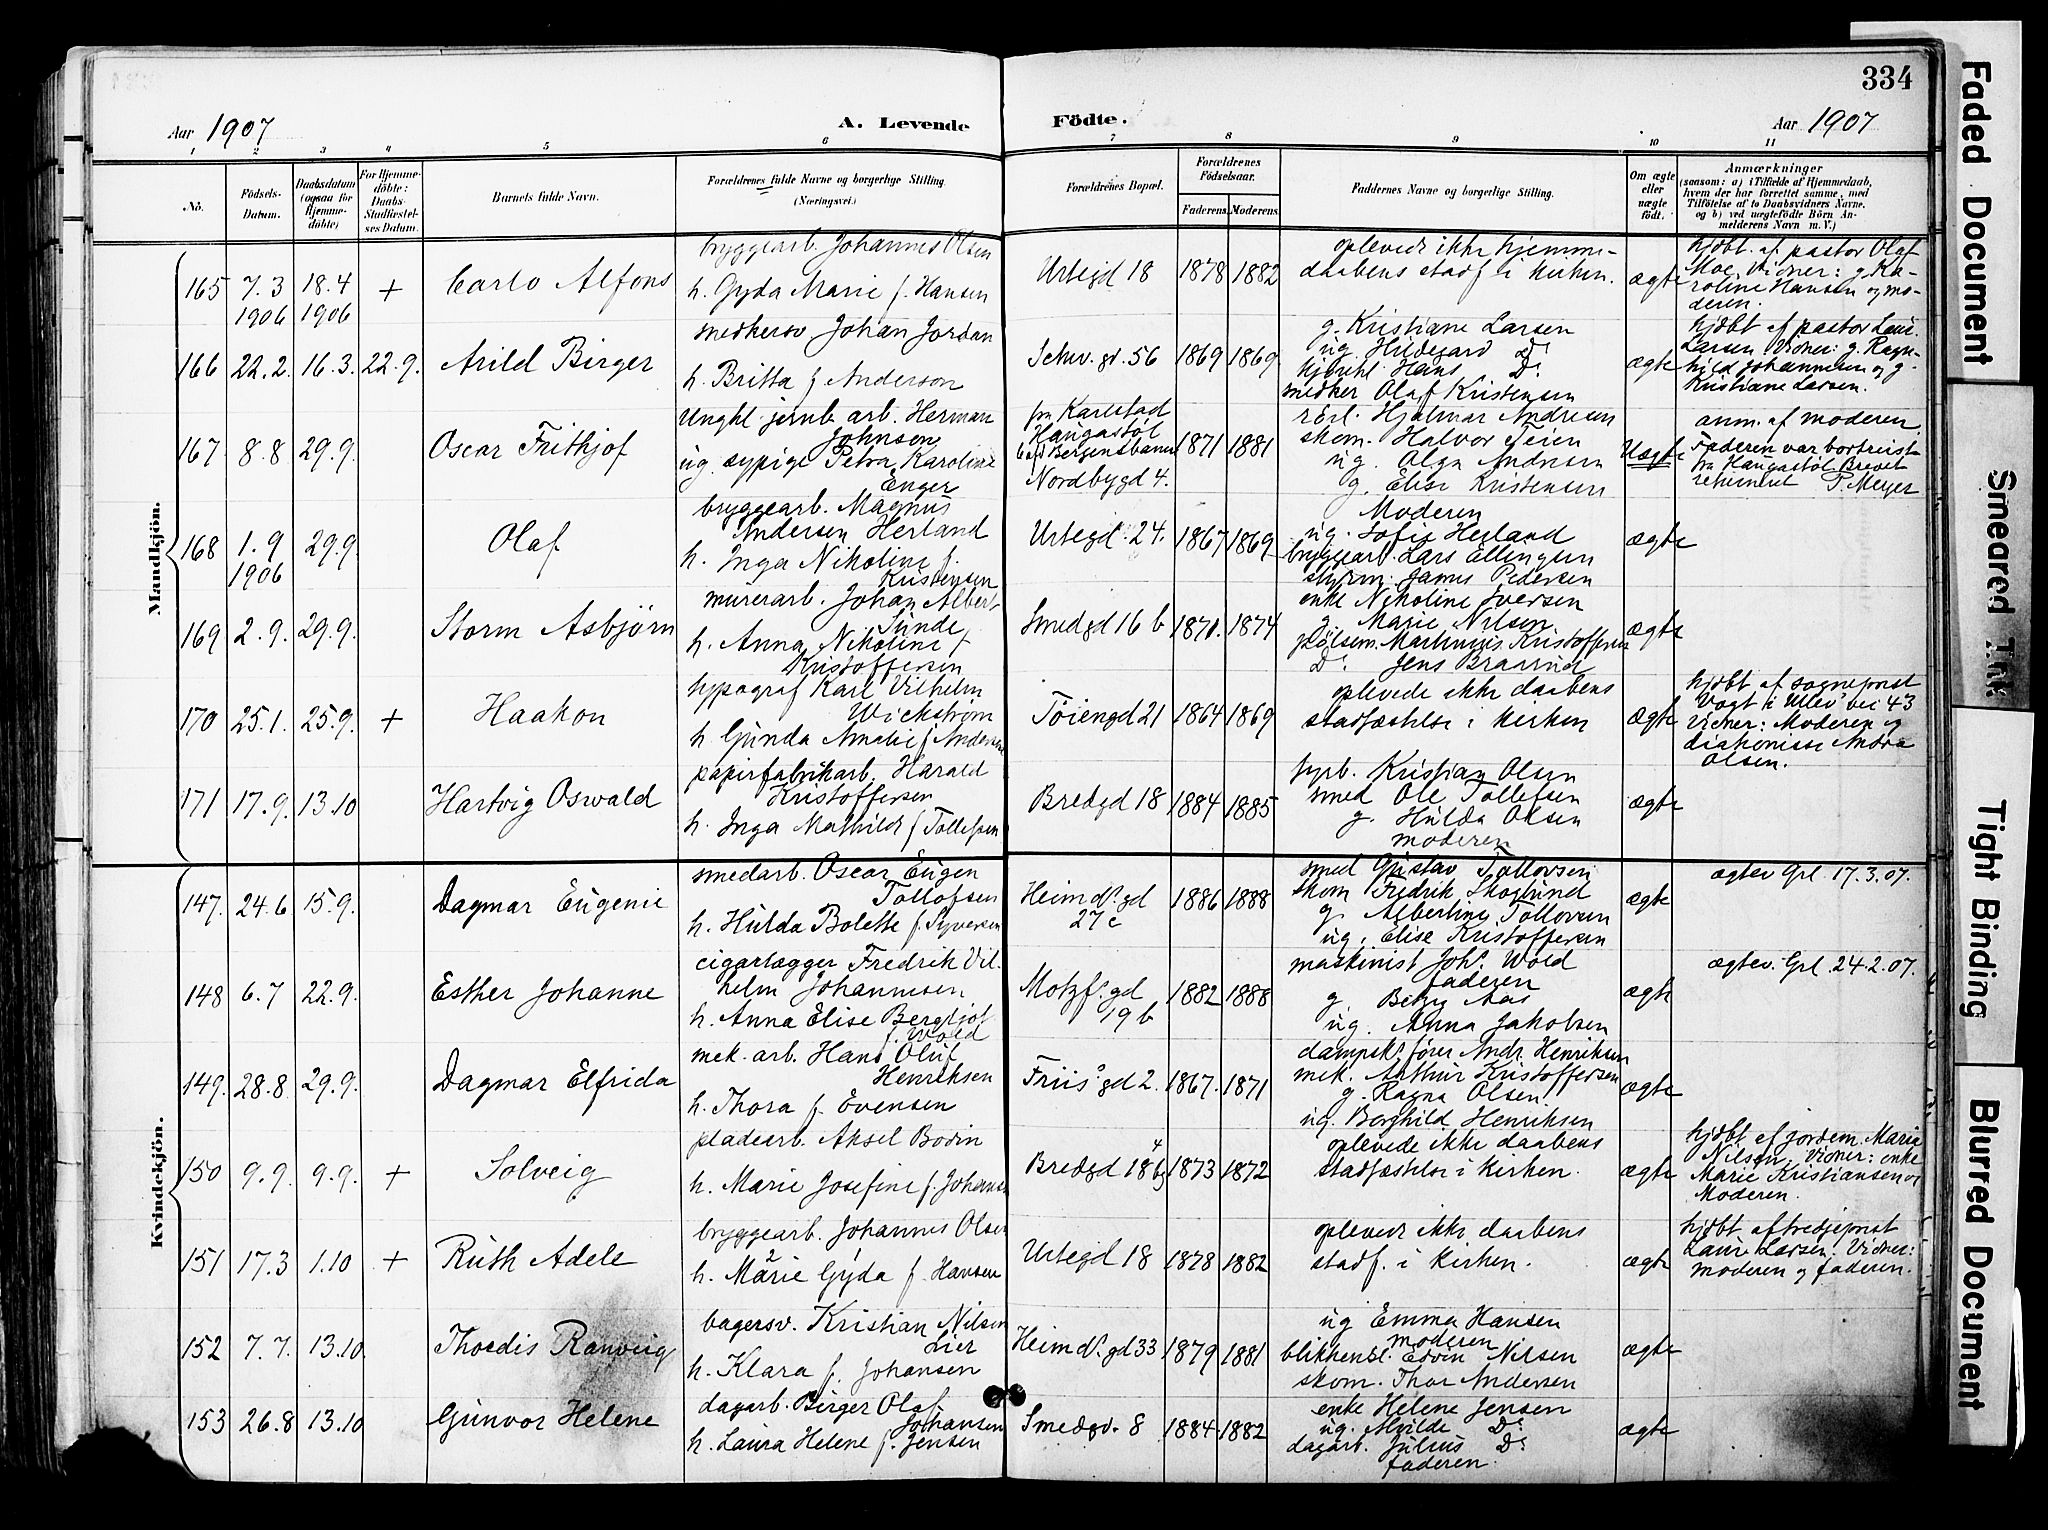 334
Aar 1907
A. Levende Födte.
Aar 1907
1 2 3 4 5 6 7 8 9 10 11
No.
Födsels-Datum.
Daabsdatum (ogsaa for Hjemme-döbte)
For Hjemme-döbte: Daabs-Stadfæstel-ses Datum.
Barnets fulde Navn.
Forældrenes fulde Navne og borgerlige Stilling.
(Næringsvei.)
Forældrenes Bopæl.
Forældrenes Födselsaar.
Faderens. Moderens.
Faddernes Navne og borgerlige Stilling.
Om ægte eller uægte födt.
Anmærkninger
(saasom: a) i Tilfælde af Hjemmedaab,
hvem der har forrettet samme, med
Tilföielse af to Daabsvidners Navne.
og b) ved uægtefödte Börn An-
melderens Navn m. V.)
Mandkjön.
165 7.3 1906 18.4 1906 + Carlo Alfons
bryggearb. Johannes Olsen
h. Gyda Marie f. Hansen
Urtegd 18 1878 1882
oplevede ikke hjemme-
daabens stadf. i kirken.
ægte
hjdbt. af pastor Olaf
Moe. Vidner: g. Ka-
roline Hansen og mo-
deren.
166 22.2. 16.3. 22.9. Arild Birger
snedkersv. Johan Jordan
h. Britta f. Anderson
Schw. gd. 56 1869 1869
g. Kristiane Larsen
ug. Hildegard Do
Hans Do
snedker Olaf Kristensen
ægte
hjdbt af pastor Laur.
Larsen. Vidner: g. Ragn-
hild Johannesen og g.
Kristiane Larsen.
167 8.8 29.9. Oscar Frithjof
Ungkl. jernb. arb. Herman
Johnson
ug. sypige Petra Karoline
Enger
fra Karlstad
Haugastöl
Bergensbanen
Nordbygd 4.
1871 1881
rörl. Hjalmar Andresen
skom. Halvor Teien
ug. Olga Andresen
g. Elise Kristensen
Uægte
anm. af moderen.
Faderen var bortreist
fra Haugastöl. Brevet
returneret P. Meyer
168 1.9 1906 29.9 Olaf
bryggearb. Magnus
Andersen Herland
h. Inga Nikoline f.
Kristensen
Urtegd. 24. 1867 1869
Moderen
ug. Sofie Herland
bryggearb. Lars Ellingsen
styrm. James Pedersen
ægte
169 2.9. 29.9. Storm Asbjörn
murerarb. Johan Albert
Sunde
h. Anna Nikoline f
Kristoffersen
Smedgd 16 b 1871. 1874
enke Nikoline Iversen
g. Marie Nilsen
pölsem. Martinius Kristoffersen
Do. Jens Braarud
ægte
170 25.1. 25.9. + Haakon
typograf Karl Vilhelm
Wickström
h. Gunda Amalie f. Andersen
Töiengd 21 1864 1869
oplevede ikke daabens
stadfæstelse i kirken
ægte
hjdbt af sogneprest
Vogt i Ullev. vei 43
Vidner: Moderen og
diakonisse Andrea
Olsen.
171 17.9. 13.10 Hartvig Oswald
papirfabrikarb. Harald
Kristoffersen
h. Inga Mathilde f. Tollefsen
Bredgd 18 1884 1885
fyrb. Kristian Olsen
smed Ole Tollefsen
g. Hulda Olsen
moderen
ægte
Kvindekjön.
147. 24.6 15.9. Dagmar Eugenie
smedarb. Oscar Eugen
Tollofsen
h. Hulda Bolette f. Syversen
Heimd.s gd 27c 1886 1888
smed Gustav Tollovsen
skom Fredrik Skoglund
g. Albertine Tollovsen
ug. Elise Kristoffersen
ægte
ægtev. Grl. 17.3.07.
148 6.7 22.9. Esther Johanne
cigarlægger Fredrik Vil-
helm Johannesen
h. Anna Elise Bergljot
f. Wold
Motzf.s gd 19 b 1882 1888
maskinist Johs. Wold
faderen
g. Betzy Aas
ug. Anna Jakobsen
ægte
ægtev. Grl. 24.2.07.
149. 28.8 29.9. Dagmar Elfrida
mek. arb. Hans Oluf
Henriksen
h. Thora f. Evensen
Friis.s gd 2. 1867. 1871
dampsk.s förer Andr. Henriksen
mek. Arthur Kristoffersen
g. Ragna Olsen
ug. Borghild Henriksen
ægte
150 9.9. 9.9. + Solveig
pladearb. Aksel Bodin
h. Marie Josefine f. Johansen
Bredgd 18 1873 1872
oplevede ikke daabens
stadfæstelse i kirken.
ægte
hjdbt. af jordem. Maria
Nilsen. Vidner: enke
Marie Kristiansen og
Moderen.
151 17.3 1.10 + Ruth Adele
bryggearb. Johannes Olsen
h. Marie Gyda f. Hansen
Urtegd 18 1878 1882
oplevede ikke daabens
stadf. i kirken.
ægte
hjdbt af tredjeprest
Laur. Larsen. Vidner:
moderen og faderen.
152 7.7. 13.10 Thordis Ranveig
bagersv. Kristian Nilsen
Lier
h. Klara f. Johansen
Heimd.s gd 33 1879 1881
ug Emma Hansen
moderen
blikkensl. Edvin Nilsen
skom. Thor Andersen
ægte
153 26.8 13.10 Gunvor Helene
dagarb. Birger Olaf
Johansen
h. Laura Helene f. Jensen
Smedgd. 8 1884 1882
enke Helene Jensen
ug. Do
dagarb. Julius Do
faderen.
ægte
Faded Document
Smeared Ink
Tight Binding
Blurred Document